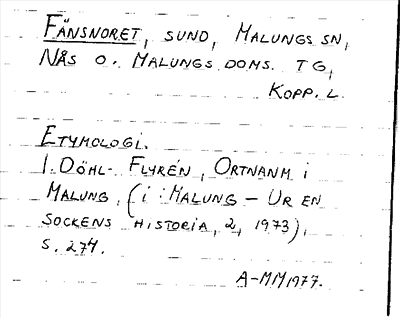 FÄNSNORET, SUND, MALUNGS SN,
NÅS O. MALUNGS DOMS. TG,
KOPP. L.
ETYMOLOGI.
I. DÖHL- FLYRÉN, ORTNANM I
MALUNG, (I: MALUNG – UR EN
SOCKENS HISTORIA, 2, 1973),
S. 274.
A-MM 1977.